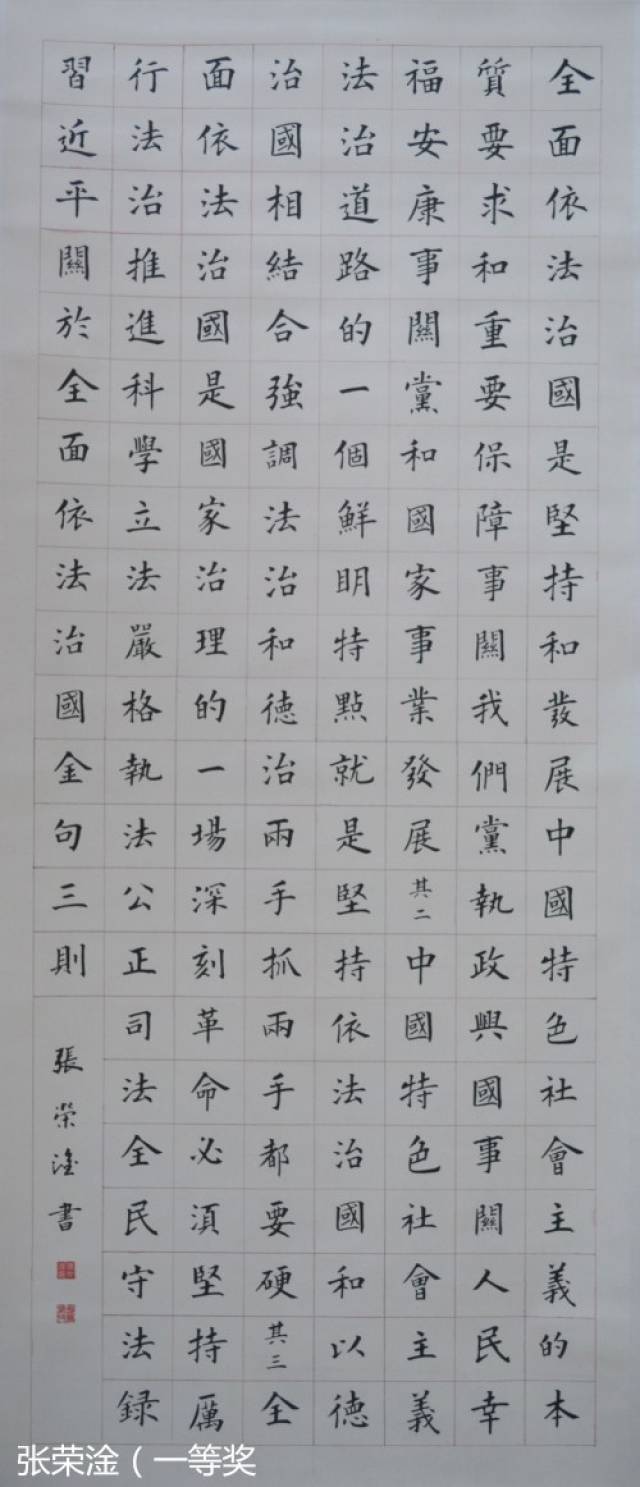 全面依法治國是堅持和發展中國特色社會主義的本
質要求和重要保障事關我們黨執政興國事關人民幸
福安康事關黨和國家事業發展其二中國特色社會主義
法治道路的一個鮮明特點就是堅持依法治國和以德
治國相結合強調法治和德治兩手抓兩手都要硬其三全
面依法治國是國家治理的一場深刻革命必須堅持厲
行法治推進科學立法嚴格執法公正司法全民守法録
習近平關於全面依法治國金句三則
張榮淦書
张荣淦（一等奖